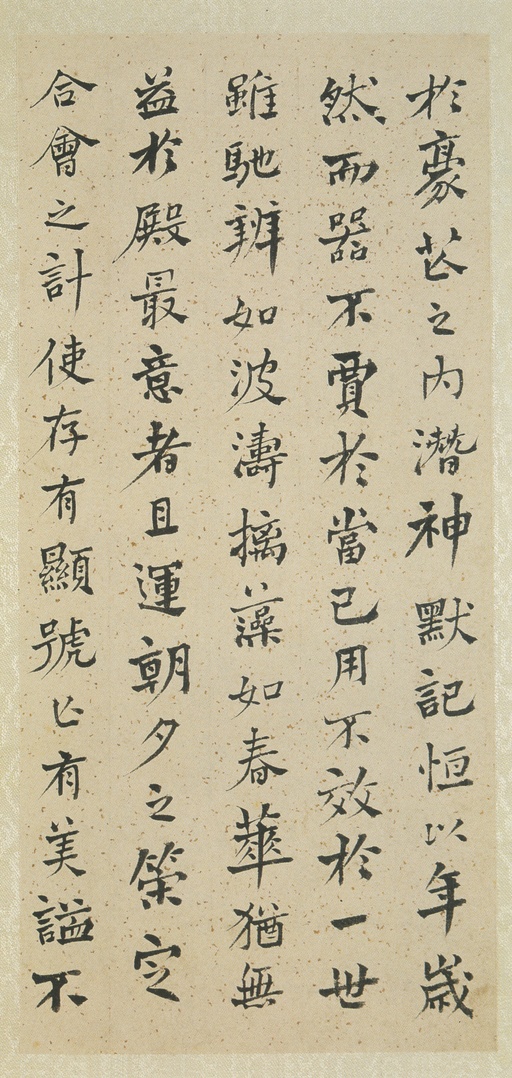 於豪芒之內潛神默記恒以年歲
然而器不賈於當己用不效於一世
雖馳辨如波濤摛藻如春華猶無
益於殿最意者且運朝夕之策定
合會之計使存有顯號亡有美諡不